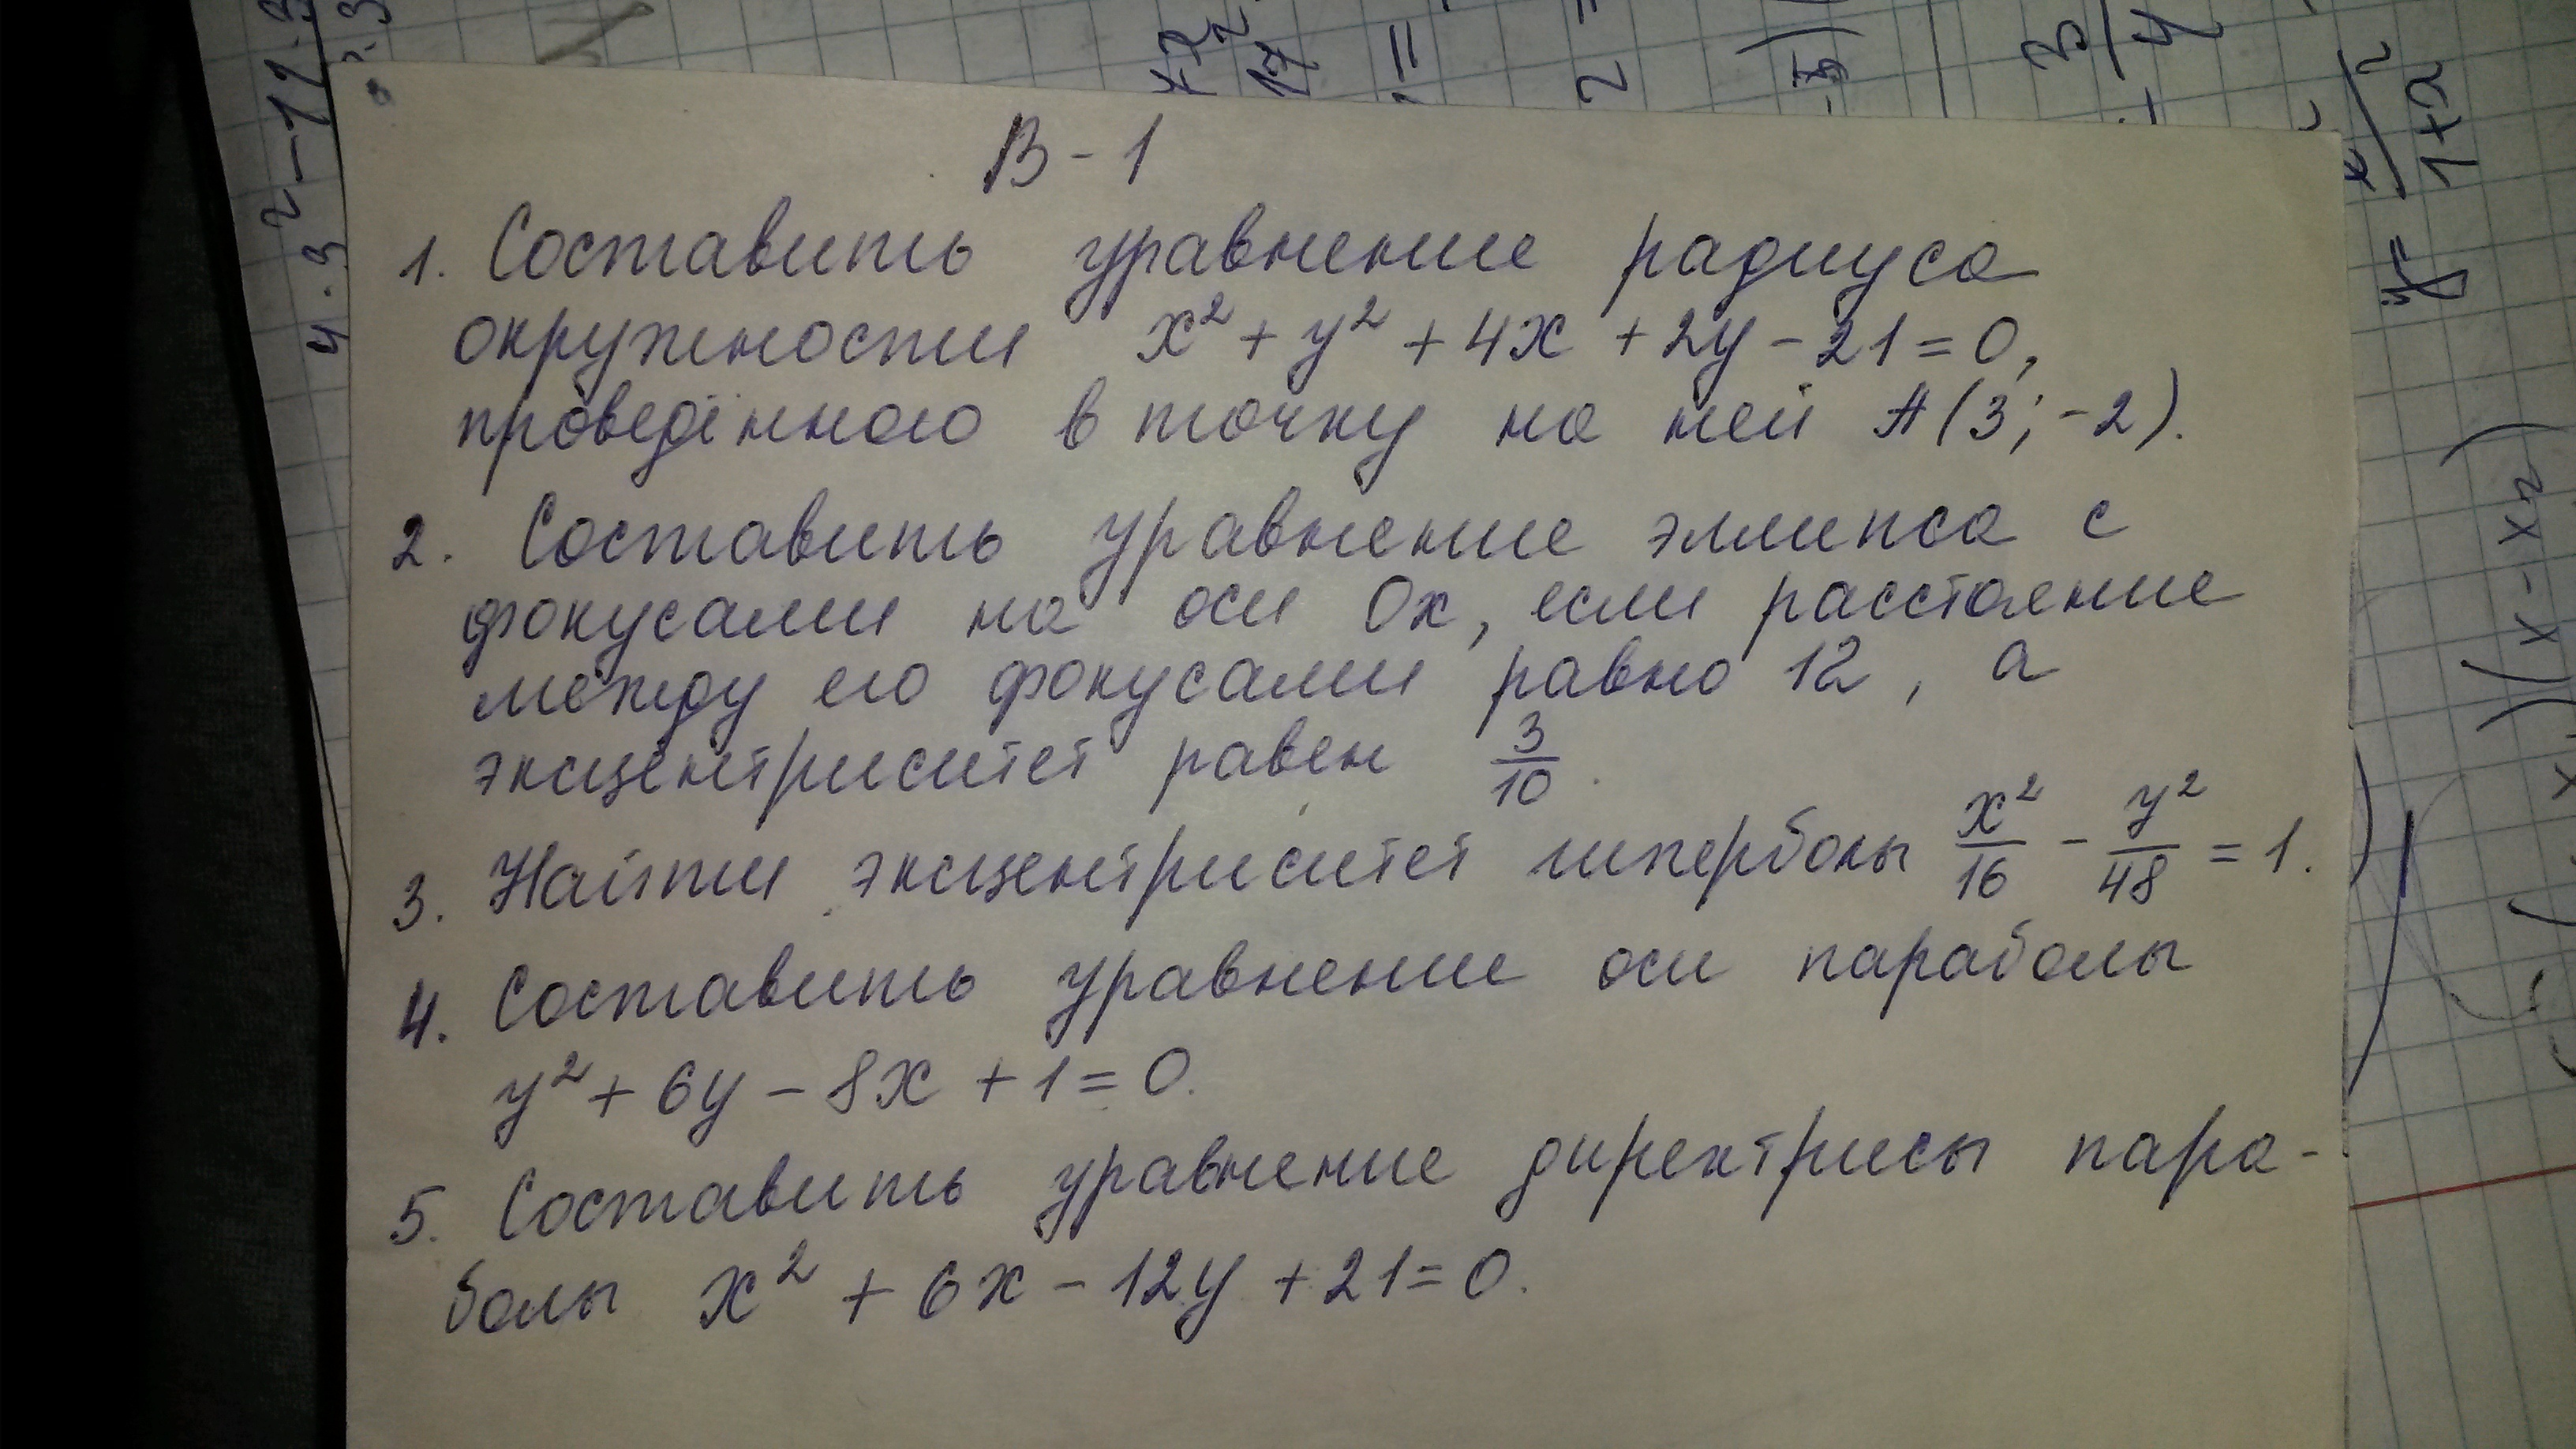 В-1
1. Составить уравнение радиуса
окружности x² + y² + 4x + 2y - 21 = 0,
проведённого в точку на ней A(3; -2).
2. Составить уравнение эллипса с
фокусами на оси Ox, если расстояние
между его фокусами равно 12, а
эксцентриситет равен 3/10.
3. Найти эксцентриситет гиперболы x²/16 - y²/48 = 1.
4. Составить уравнение оси параболы
y² + 6y - 8x + 1 = 0.
5. Составить уравнение директрисы пара-
болы x² + 6x - 12y + 21 = 0.